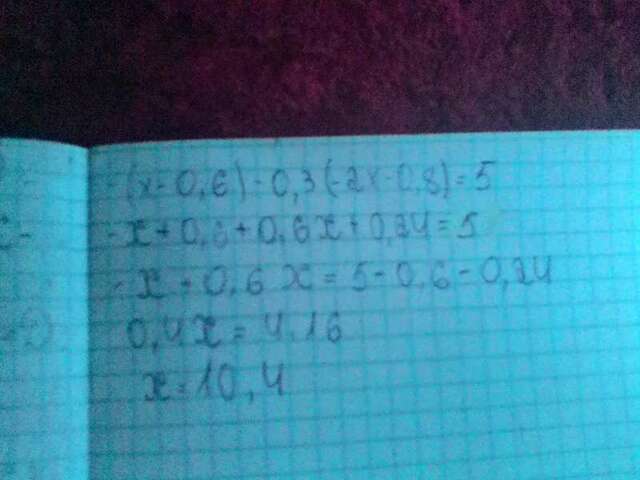 -(x-0,6)-0,3(-2x-0,8)=5
-x+0,6+0,6x+0,24=5
-x+0,6x=5-0,6-0,24
0,4x=4,16
x=10,4